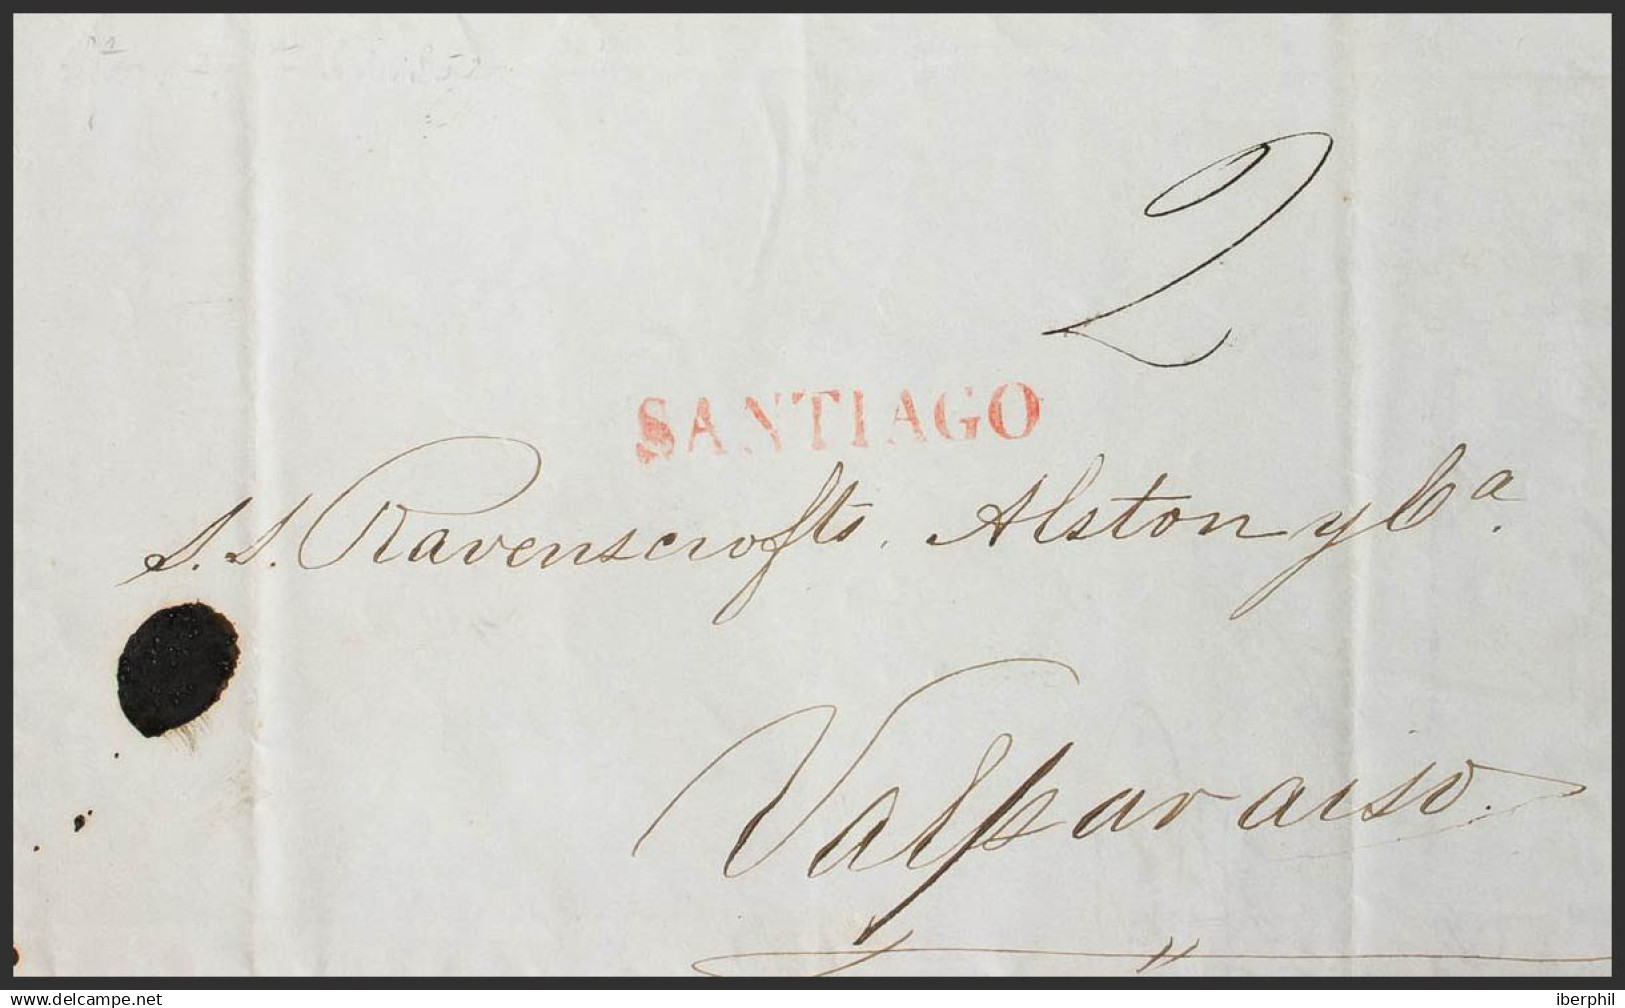 2
SANTIAGO
S.S. Ravenscrofts, Alston y Cª.
Valparaiso.
www.delcampe.net
iberphil